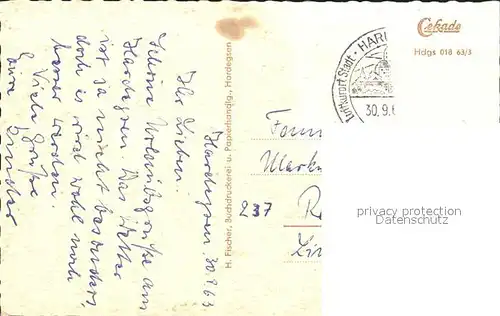 Hardegsen. 30.9.63.
Ihr Lieben.
Schöne Urlaubsgrüße aus
Hardegsen. Das Wetter
ist ja nicht besonders,
doch es wird wohl noch
besser werden.
Viele Grüße
Eure
H. Fischer, Buchdruckerei u. Papierhandlg., Hardegsen
Cekade
Hdgs 018 63/3
Luftkurort Stadt · HAR
30.9.6
Fam
237
privacy protection
www.ansichtskarten-lexikon.de